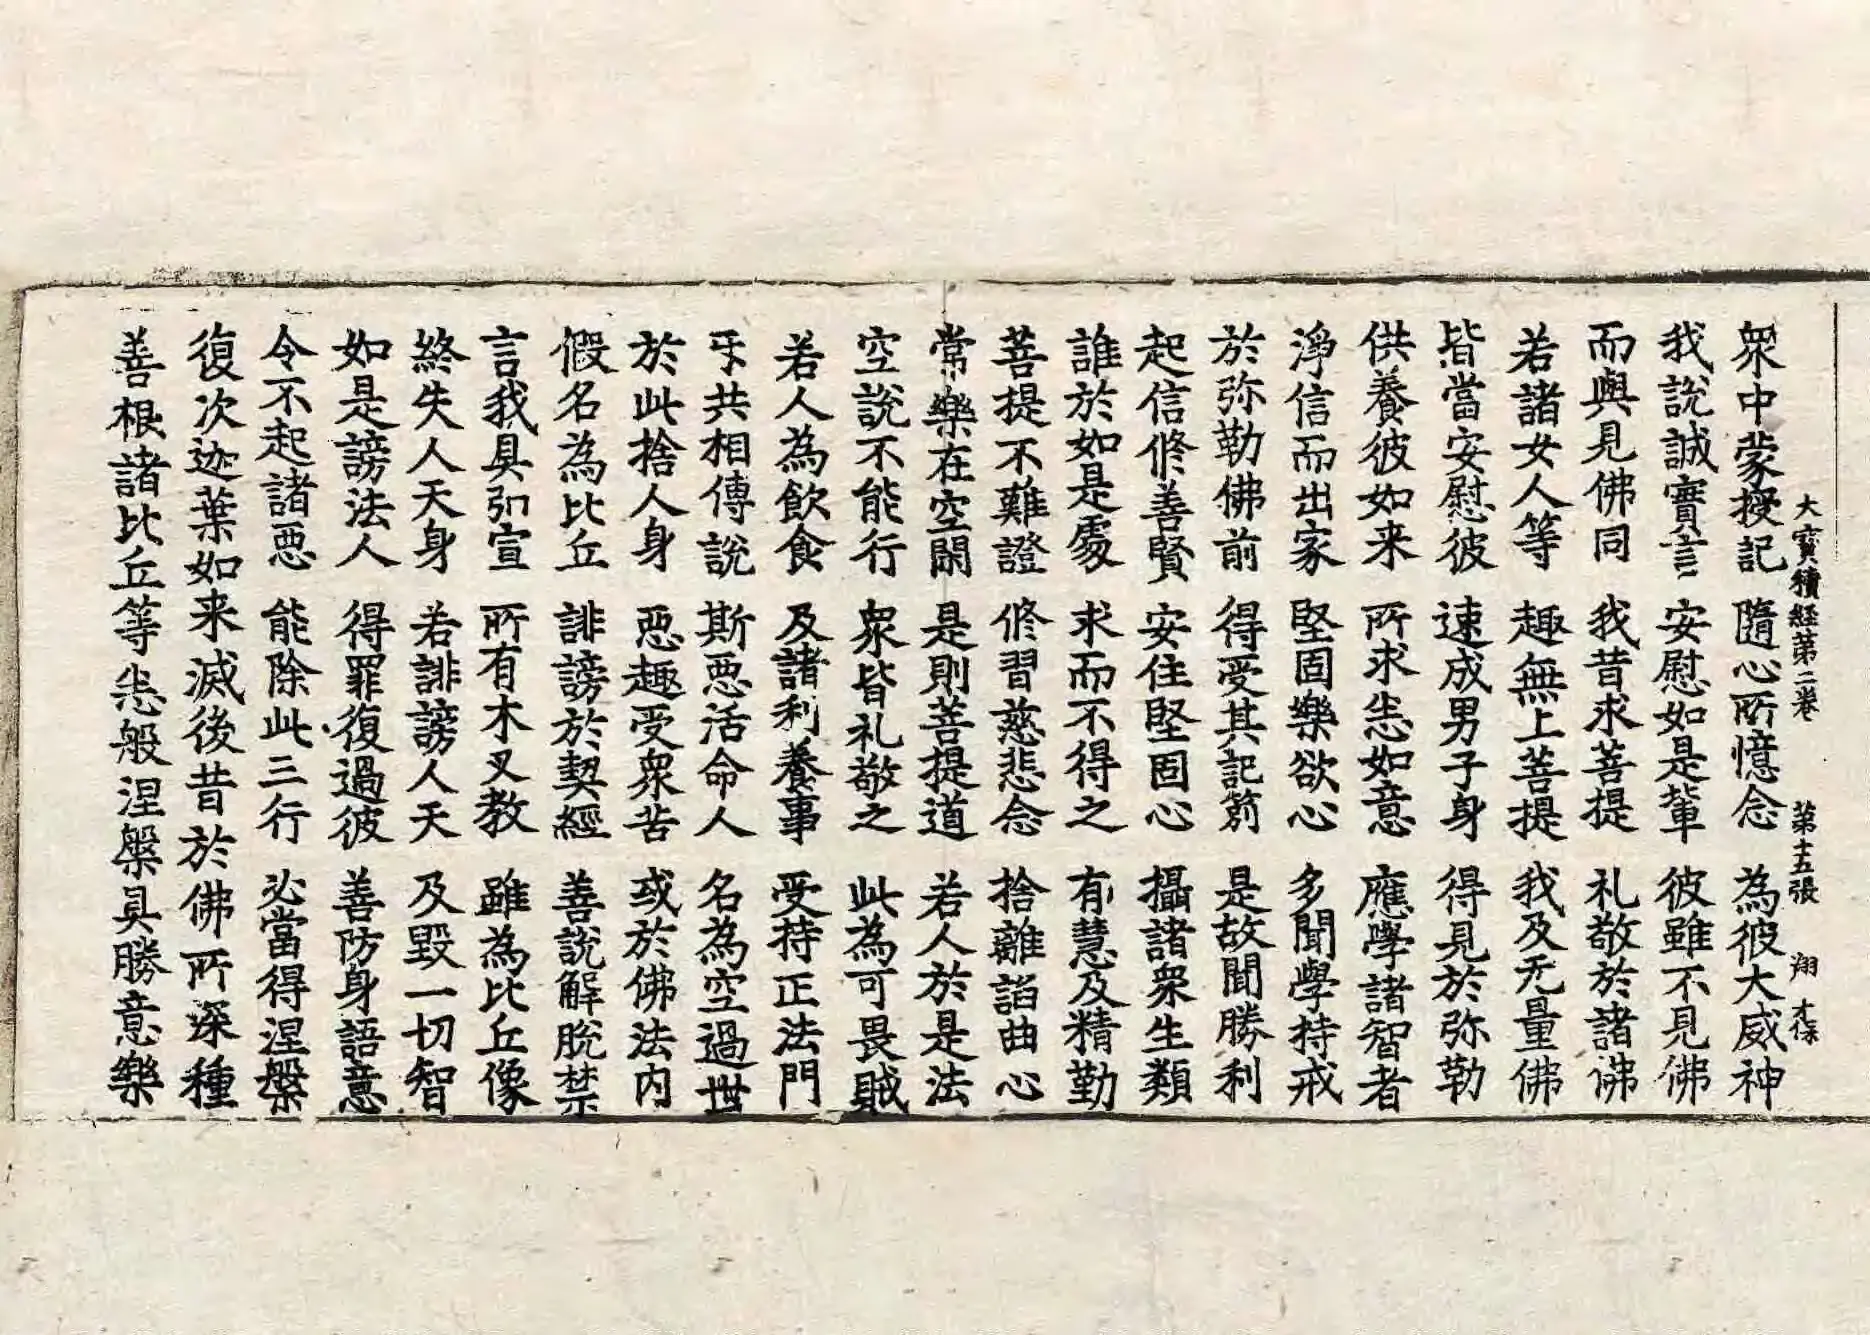 大寶積經第二卷　第十五張　翔　才保
衆中蒙授記　隨心所憶念　為彼大威神
我說誠實言　安慰如是輩　彼雖不見佛
而與見佛同　我昔求菩提　礼敬於諸佛
若諸女人等　趣無上菩提　我及无量佛
皆當安慰彼　速成男子身　得見於弥勒
供養彼如来　所求悉如意　應學諸智者
淨信而出家　堅固樂欲心　多聞學持戒
於弥勒佛前　得受其記莂　是故聞勝利
起信修善賢　安住堅固心　攝諸衆生類
誰於如是處　求而不得之　有慧及精勤
菩提不難證　修習慈悲念　捨離諂曲心
常樂在空閑　是則菩提道　若人於是法
空說不能行　衆皆礼敬之　此為可畏賊
若人為飲食　及諸利養事　受持正法門
乎共相傳說　斯惡活命人　名為空過世
於此捨人身　惡趣受衆苦　或於佛法内
假名為比丘　誹謗於契經　善說解脫禁
言我具弘宣　所有木叉教　雖為比丘像
終失人天身　若誹謗人天　及毀一切智
如是謗法人　得罪復過彼　善防身語意
令不起諸惡　能除此三行　必當得涅槃
復次迦葉如来滅後昔於佛所深種
善根諸比丘等悉般涅槃具勝意樂